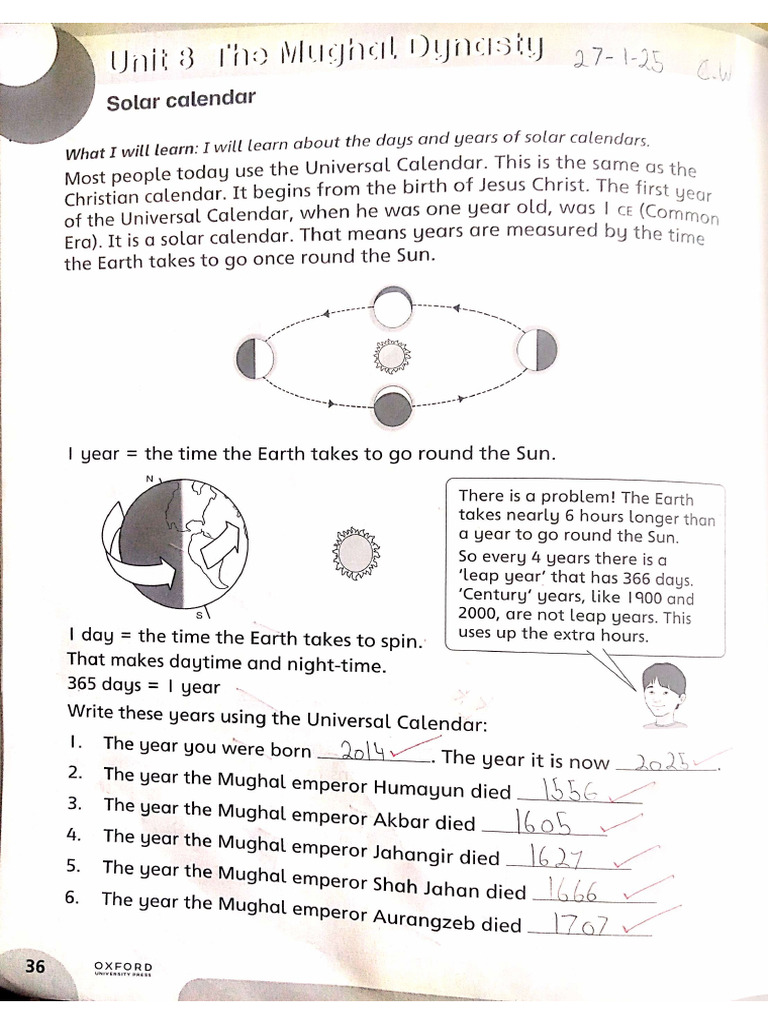 Unit 8 The Mughal Dynasty 27-1-25 C.W
Solar calendar
What I will learn: I will learn about the days and years of solar calendars.
Most people today use the Universal Calendar. This is the same as the
Christian calendar. It begins from the birth of Jesus Christ. The first year
of the Universal Calendar, when he was one year old, was 1 CE (Common
Era). It is a solar calendar. That means years are measured by the time
the Earth takes to go once round the Sun.
1 year = the time the Earth takes to go round the Sun.
N
S
There is a problem! The Earth
takes nearly 6 hours longer than
a year to go round the Sun.
So every 4 years there is a
'leap year' that has 366 days.
'Century' years, like 1900 and
2000, are not leap years. This
uses up the extra hours.
1 day = the time the Earth takes to spin.
That makes daytime and night-time.
365 days = 1 year
Write these years using the Universal Calendar:
1. The year you were born 2014. The year it is now 2025.
2. The year the Mughal emperor Humayun died 1556
3. The year the Mughal emperor Akbar died 1605
4. The year the Mughal emperor Jahangir died 1627
5. The year the Mughal emperor Shah Jahan died 1666
6. The year the Mughal emperor Aurangzeb died 1707
36 OXFORD
UNIVERSITY PRESS